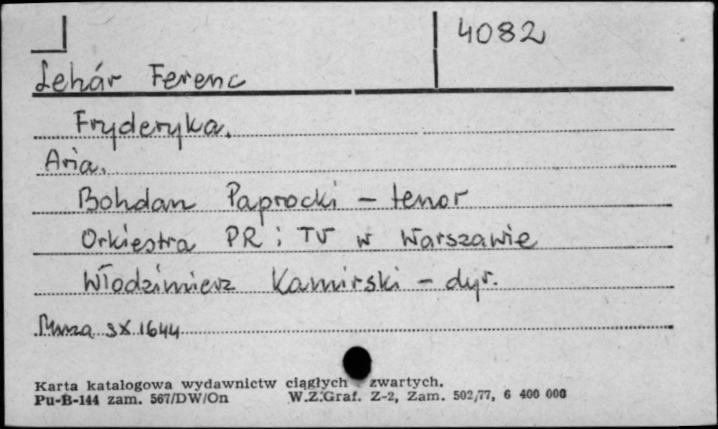 4082
Lehár Ferenc
Fryderyka.
Aria.
Bohdan Paprocki – tenor
Orkiestra PR i TV w Warszawie
Włodzimierz Kamirski – dyr.
Muza SX 1644
Karta katalogowa wydawnictw ciągłych zwartych.
Pu-B-144 zam. 567/DW/On W.Z.Graf. Z-2, Zam. 502/77, 6 400 000